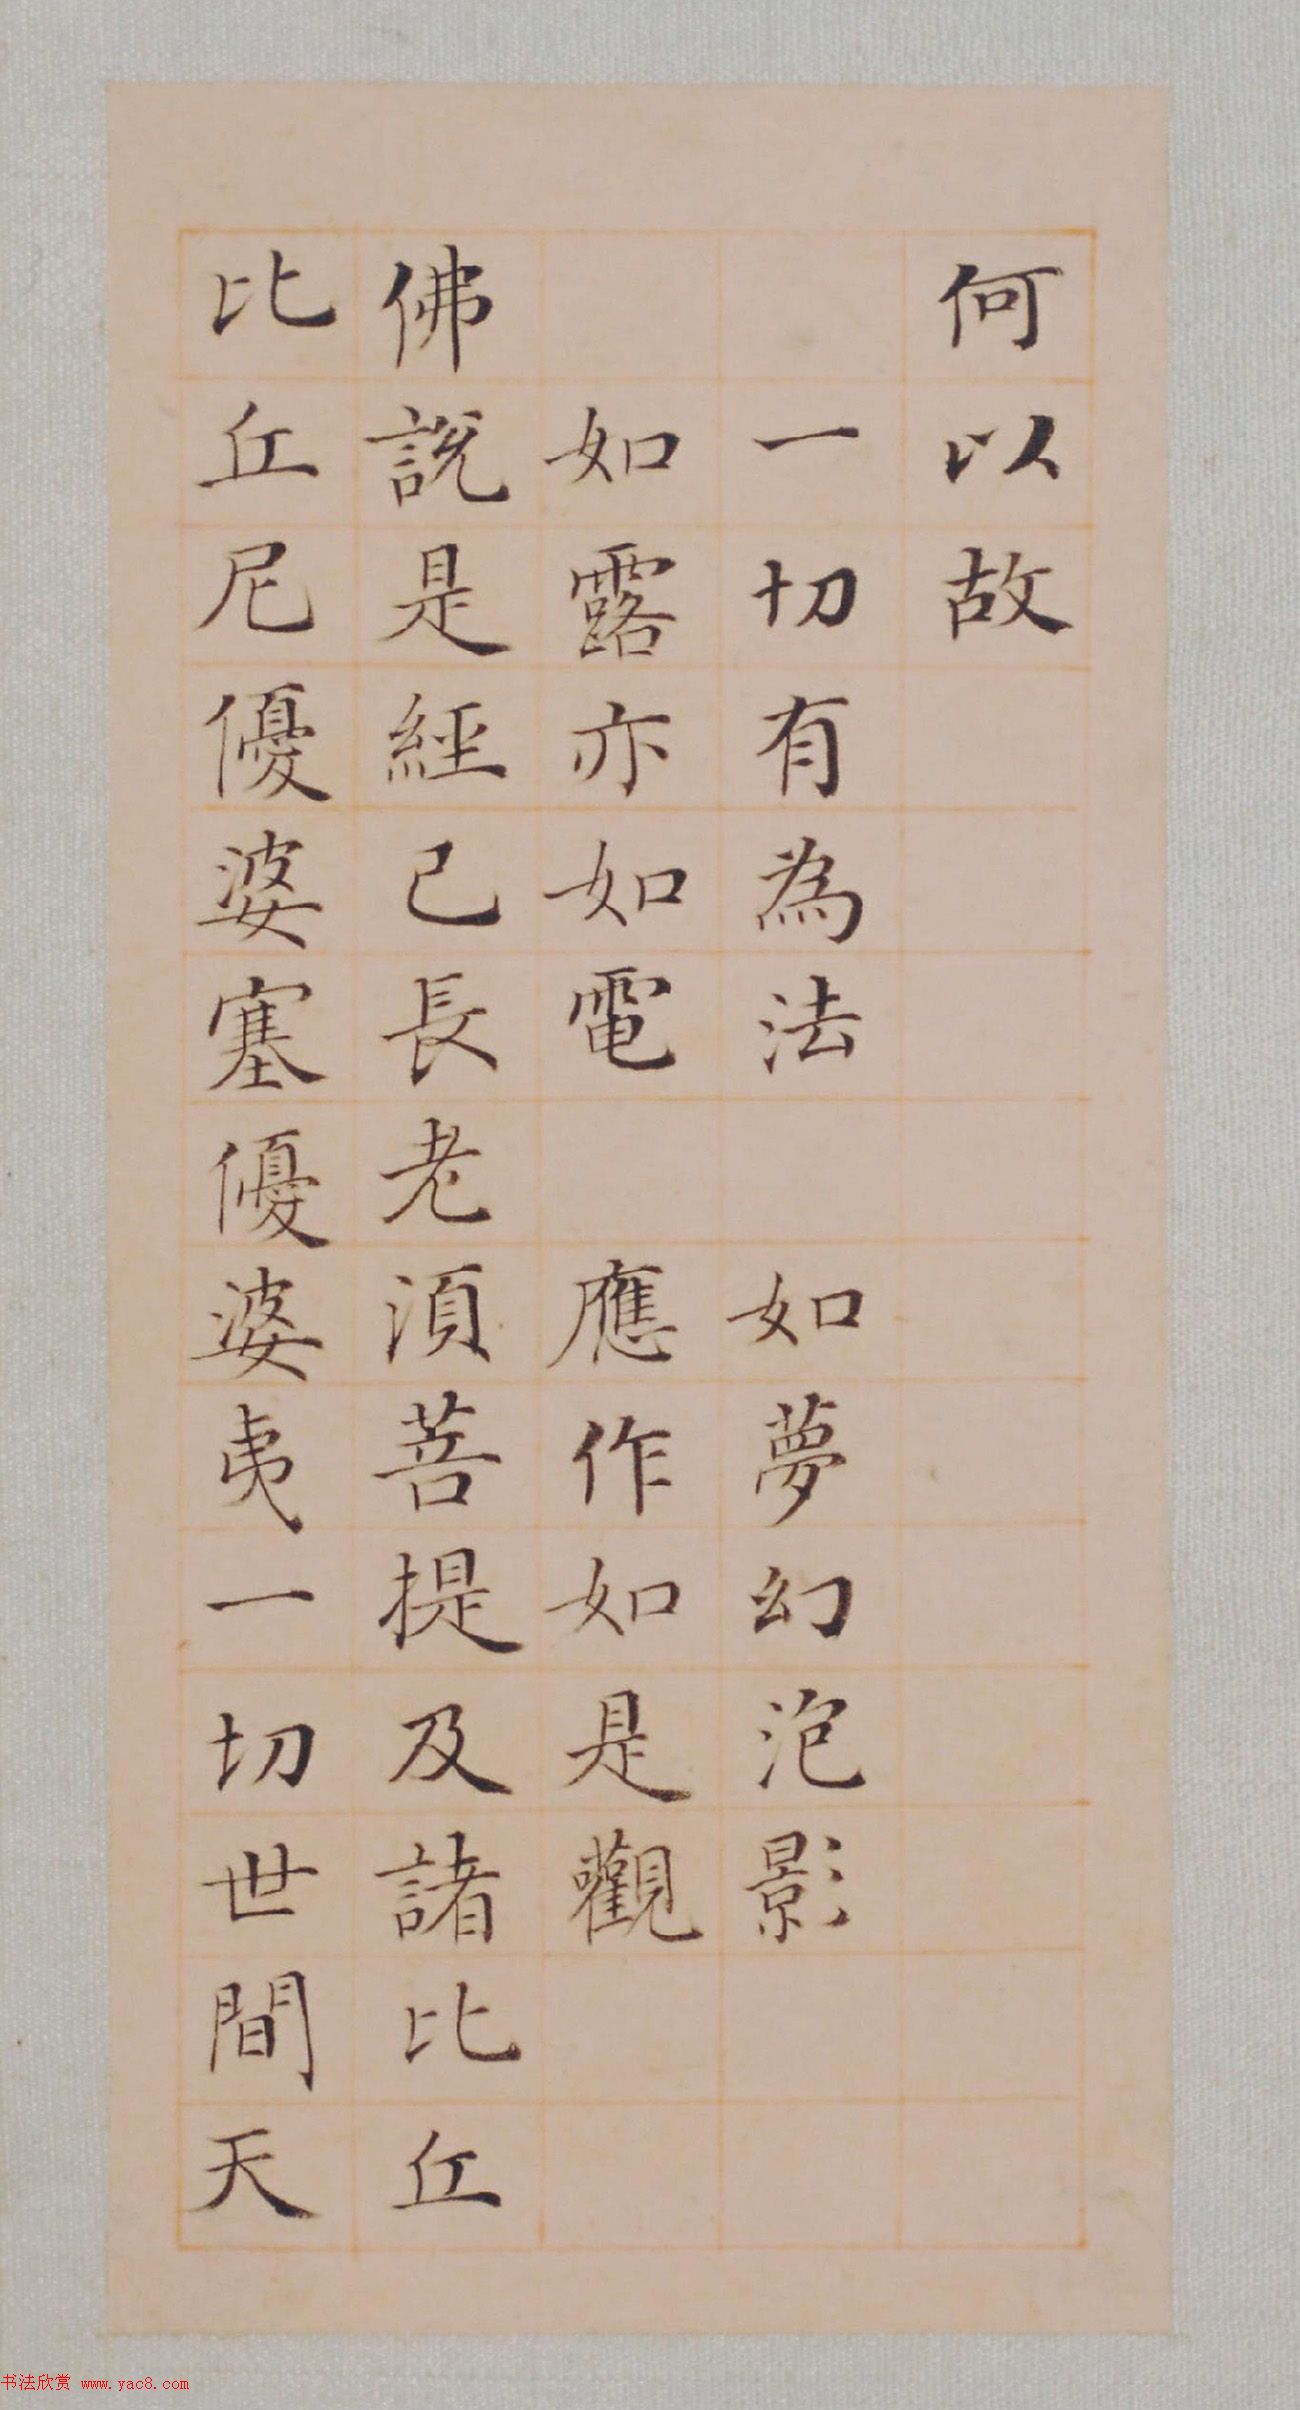 何以故
一切有為法 如夢幻泡影
如露亦如電 應作如是觀
佛說是經已長老須菩提及諸比丘
比丘尼優婆塞優婆夷一切世間天
书法欣赏 www.yac8.com